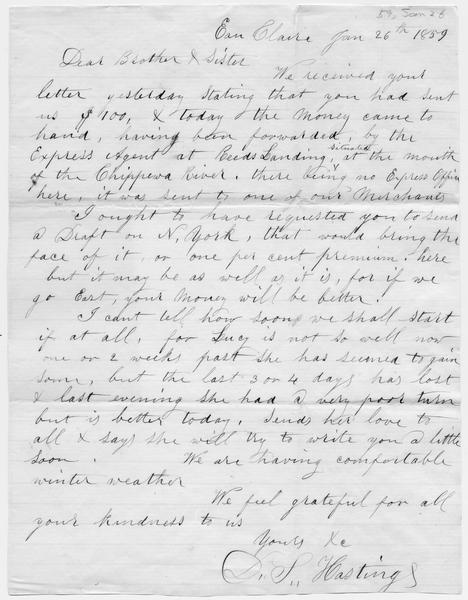 59, Jan 26
Eau Claire Jan 26th 1859
Dear Brother & Sister
We received your
letter yesterday stating that you had sent
us $100, & today the Money came to
hand, having been forwarded, by the
Express Agent at Reeds Landing, situated at the mouth
of the Chippewa River. there being no Express Office
here, it was sent to one of our Merchants
I ought to have requested you to send
a Draft on N, York, that would bring the
face of it, or one per cent premium here
but it may be as well as it is, for if we
go East, your Money will be better.
I cant tell how soon we shall start
if at all, for Lucy is not so well now
one or 2 weeks past she has seemed to gain
some, but the last 3 or 4 days has lost
& last evening she had a very poor turn
but is better today. Sends her love to
all & says she will try to write you a little
soon. We are having comfortable
winter weather
We feel grateful for all
your kindness to us
Yours &c
D. S,, Hastings